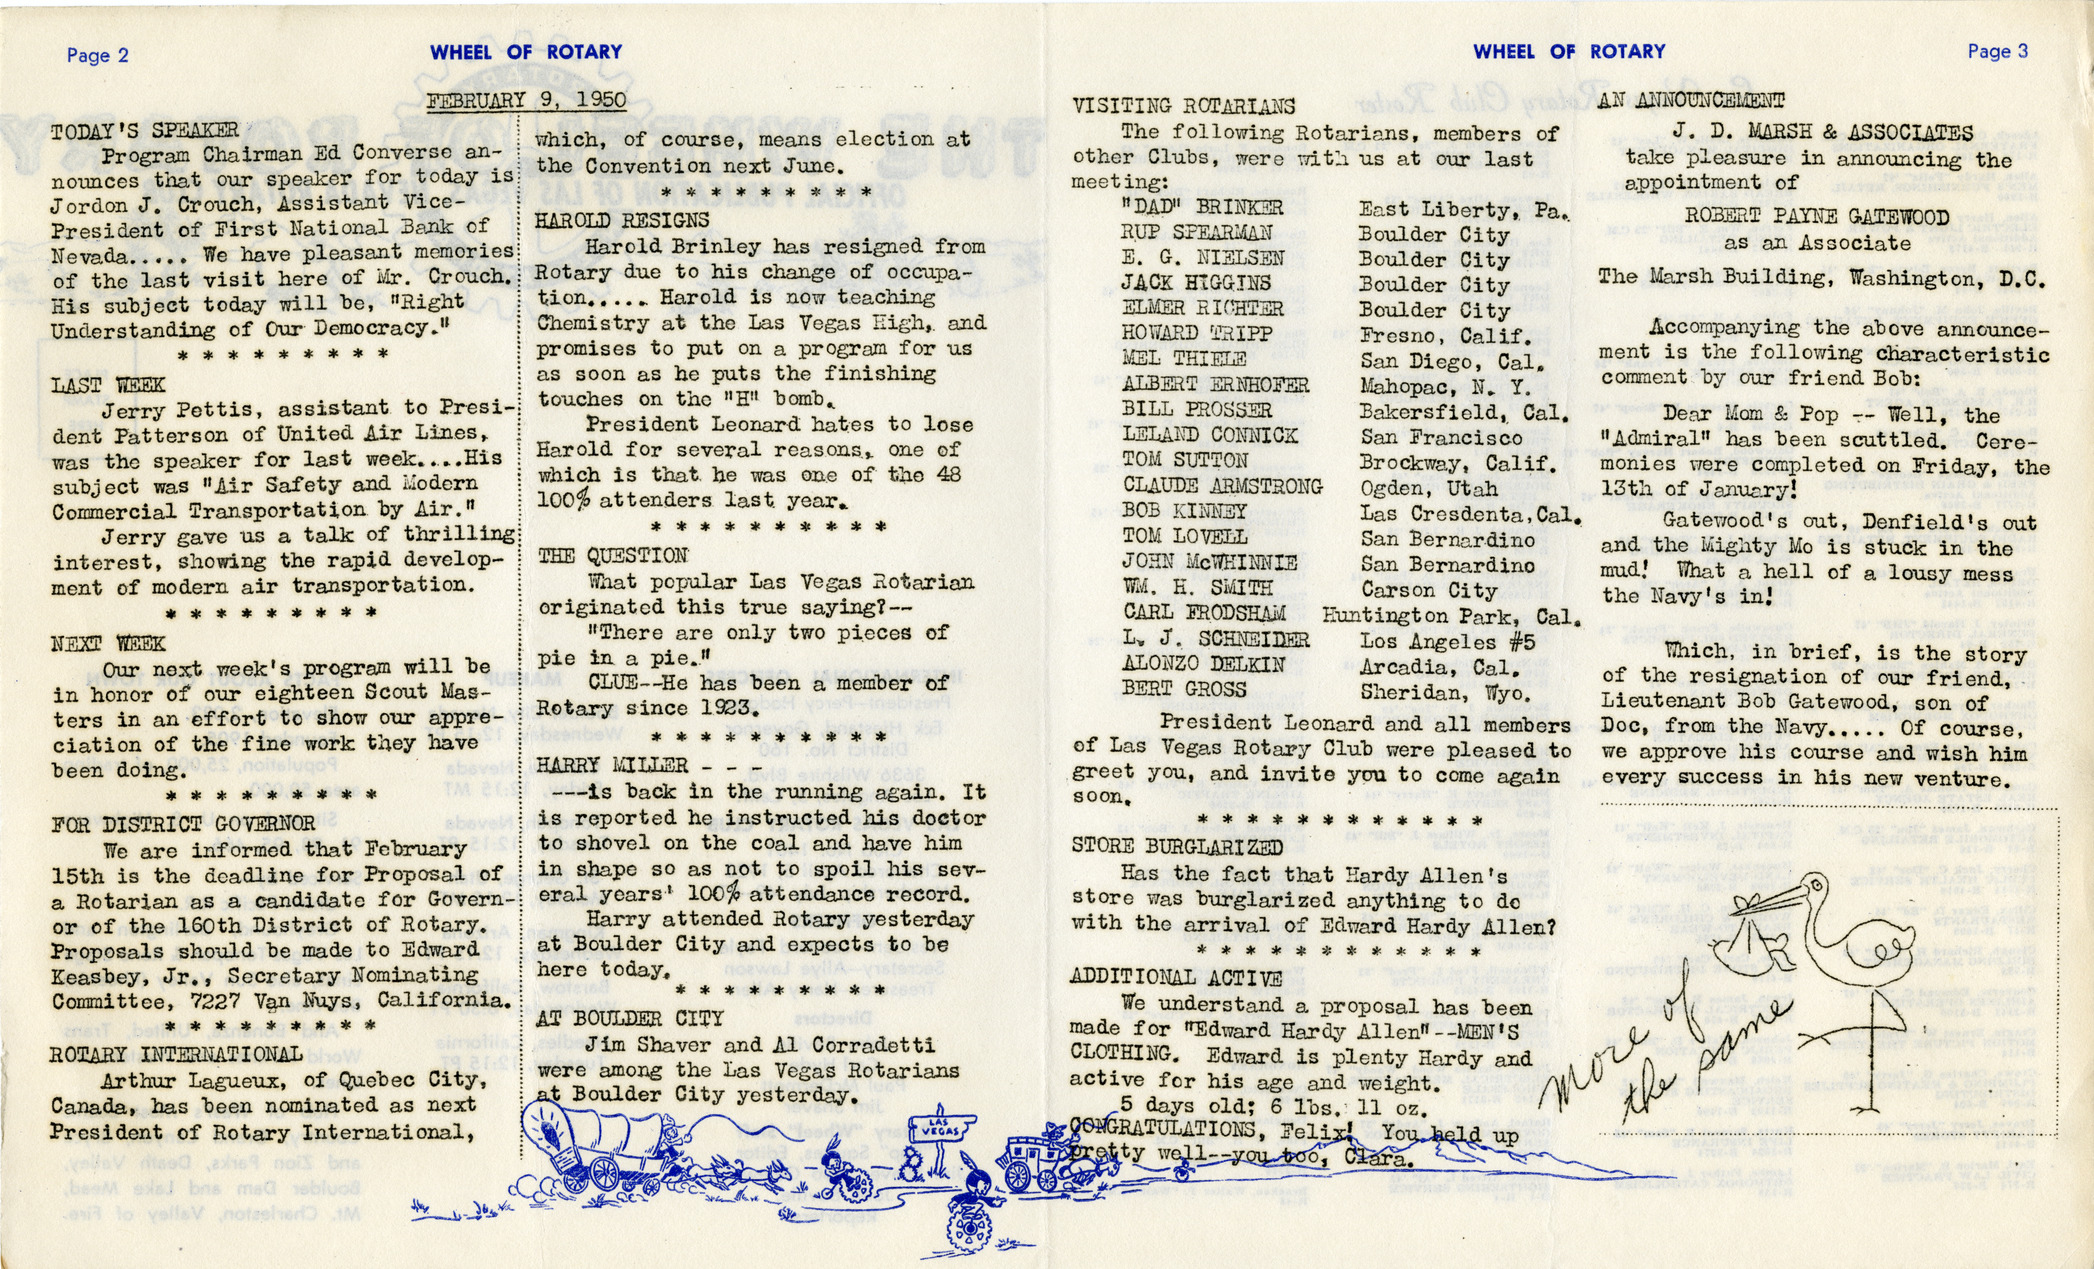 Page 2
WHEEL OF ROTARY
FEBRUARY 9, 1950
TODAY'S SPEAKER
Program Chairman Ed Converse an-
nounces that our speaker for today is
Jordon J. Crouch, Assistant Vice-
President of First National Bank of
Nevada..... We have pleasant memories
of the last visit here of Mr. Crouch.
His subject today will be, "Right
Understanding of Our Democracy."
* * * * * * * * *
LAST WEEK
Jerry Pettis, assistant to Presi-
dent Patterson of United Air Lines,
was the speaker for last week....His
subject was "Air Safety and Modern
Commercial Transportation by Air."
Jerry gave us a talk of thrilling
interest, showing the rapid develop-
ment of modern air transportation.
* * * * * * * * *
NEXT WEEK
Our next week's program will be
in honor of our eighteen Scout Mas-
ters in an effort to show our appre-
ciation of the fine work they have
been doing.
* * * * * * * * *
FOR DISTRICT GOVERNOR
We are informed that February
15th is the deadline for Proposal of
a Rotarian as a candidate for Govern-
or of the 160th District of Rotary.
Proposals should be made to Edward
Keasbey, Jr., Secretary Nominating
Committee, 7227 Van Nuys, California.
* * * * * * * * *
ROTARY INTERNATIONAL
Arthur Lagueux, of Quebec City,
Canada, has been nominated as next
President of Rotary International,
which, of course, means election at
the Convention next June.
* * * * * * * * *
HAROLD RESIGNS
Harold Brinley has resigned from
Rotary due to his change of occupa-
tion..... Harold is now teaching
Chemistry at the Las Vegas High, and
promises to put on a program for us
as soon as he puts the finishing
touches on the "H" bomb.
President Leonard hates to lose
Harold for several reasons, one of
which is that he was one of the 48
100% attenders last year.
* * * * * * * * * *
THE QUESTION
What popular Las Vegas Rotarian
originated this true saying?--
"There are only two pieces of
pie in a pie."
CLUE--He has been a member of
Rotary since 1923.
* * * * * * * * * *
HARRY MILLER - - -
---is back in the running again. It
is reported he instructed his doctor
to shovel on the coal and have him
in shape so as not to spoil his sev-
eral years' 100% attendance record.
Harry attended Rotary yesterday
at Boulder City and expects to be
here today.
* * * * * * * * *
AT BOULDER CITY
Jim Shaver and Al Corradetti
were among the Las Vegas Rotarians
at Boulder City yesterday.
LAS
VEGAS
WHEEL OF ROTARY
Page 3
VISITING ROTARIANS
The following Rotarians, members of
other Clubs, were with us at our last
meeting:
"DAD" BRINKER East Liberty, Pa.
RUP SPEARMAN Boulder City
E. G. NIELSEN Boulder City
JACK HIGGINS Boulder City
ELMER RICHTER Boulder City
HOWARD TRIPP Fresno, Calif.
MEL THIELE San Diego, Cal.
ALBERT ERNHOFER Mahopac, N. Y.
BILL PROSSER Bakersfield, Cal.
LELAND CONNICK San Francisco
TOM SUTTON Brockway, Calif.
CLAUDE ARMSTRONG Ogden, Utah
BOB KINNEY Las Cresdenta,Cal.
TOM LOVELL San Bernardino
JOHN McWHINNIE San Bernardino
WM. H. SMITH Carson City
CARL FRODSHAM Huntington Park, Cal.
L. J. SCHNEIDER Los Angeles #5
ALONZO DELKIN Arcadia, Cal.
BERT GROSS Sheridan, Wyo.
President Leonard and all members
of Las Vegas Rotary Club were pleased to
greet you, and invite you to come again
soon.
* * * * * * * * * * * *
STORE BURGLARIZED
Has the fact that Hardy Allen's
store was burglarized anything to do
with the arrival of Edward Hardy Allen?
* * * * * * * * * * * *
ADDITIONAL ACTIVE
We understand a proposal has been
made for "Edward Hardy Allen"--MEN'S
CLOTHING. Edward is plenty Hardy and
active for his age and weight.
5 days old; 6 lbs. 11 oz.
CONGRATULATIONS, Felix! You held up
pretty well--you too, Clara.
AN ANNOUNCEMENT
J. D. MARSH & ASSOCIATES
take pleasure in announcing the
appointment of
ROBERT PAYNE GATEWOOD
as an Associate
The Marsh Building, Washington, D.C.
Accompanying the above announce-
ment is the following characteristic
comment by our friend Bob:
Dear Mom & Pop -- Well, the
"Admiral" has been scuttled. Cere-
monies were completed on Friday, the
13th of January!
Gatewood's out, Denfield's out
and the Mighty Mo is stuck in the
mud! What a hell of a lousy mess
the Navy's in!
Which, in brief, is the story
of the resignation of our friend,
Lieutenant Bob Gatewood, son of
Doc, from the Navy..... Of course,
we approve his course and wish him
every success in his new venture.
More of
the same